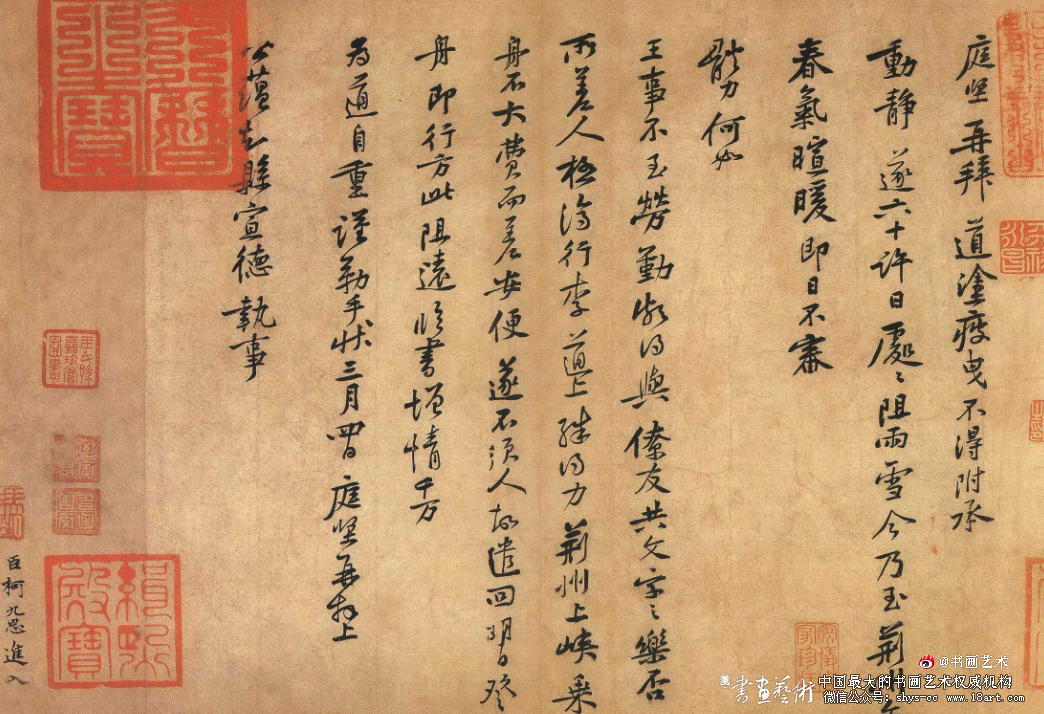 庭坚再拜道塗疲曳不得附承
動静遂六十许日處〻阻雨雪今乃至荆州
春氣暄暖即日不審
體力何如
王事不至勞勤頗得與僚友共文字之樂否
所差人極濟行李道上殊得力荆州上峽乘
舟不大費而差安便遂不須人故遣回明日癸
舟即行方此阻遠临書增情千万
为道自重谨勒手状三月四日庭坚再拜上
公蕴知縣宣德執事
臣柯九思進入
@书画艺术
書畫藝術
中国最大的书画艺术权威机构
微信公众号：shys-cc www.18art.com